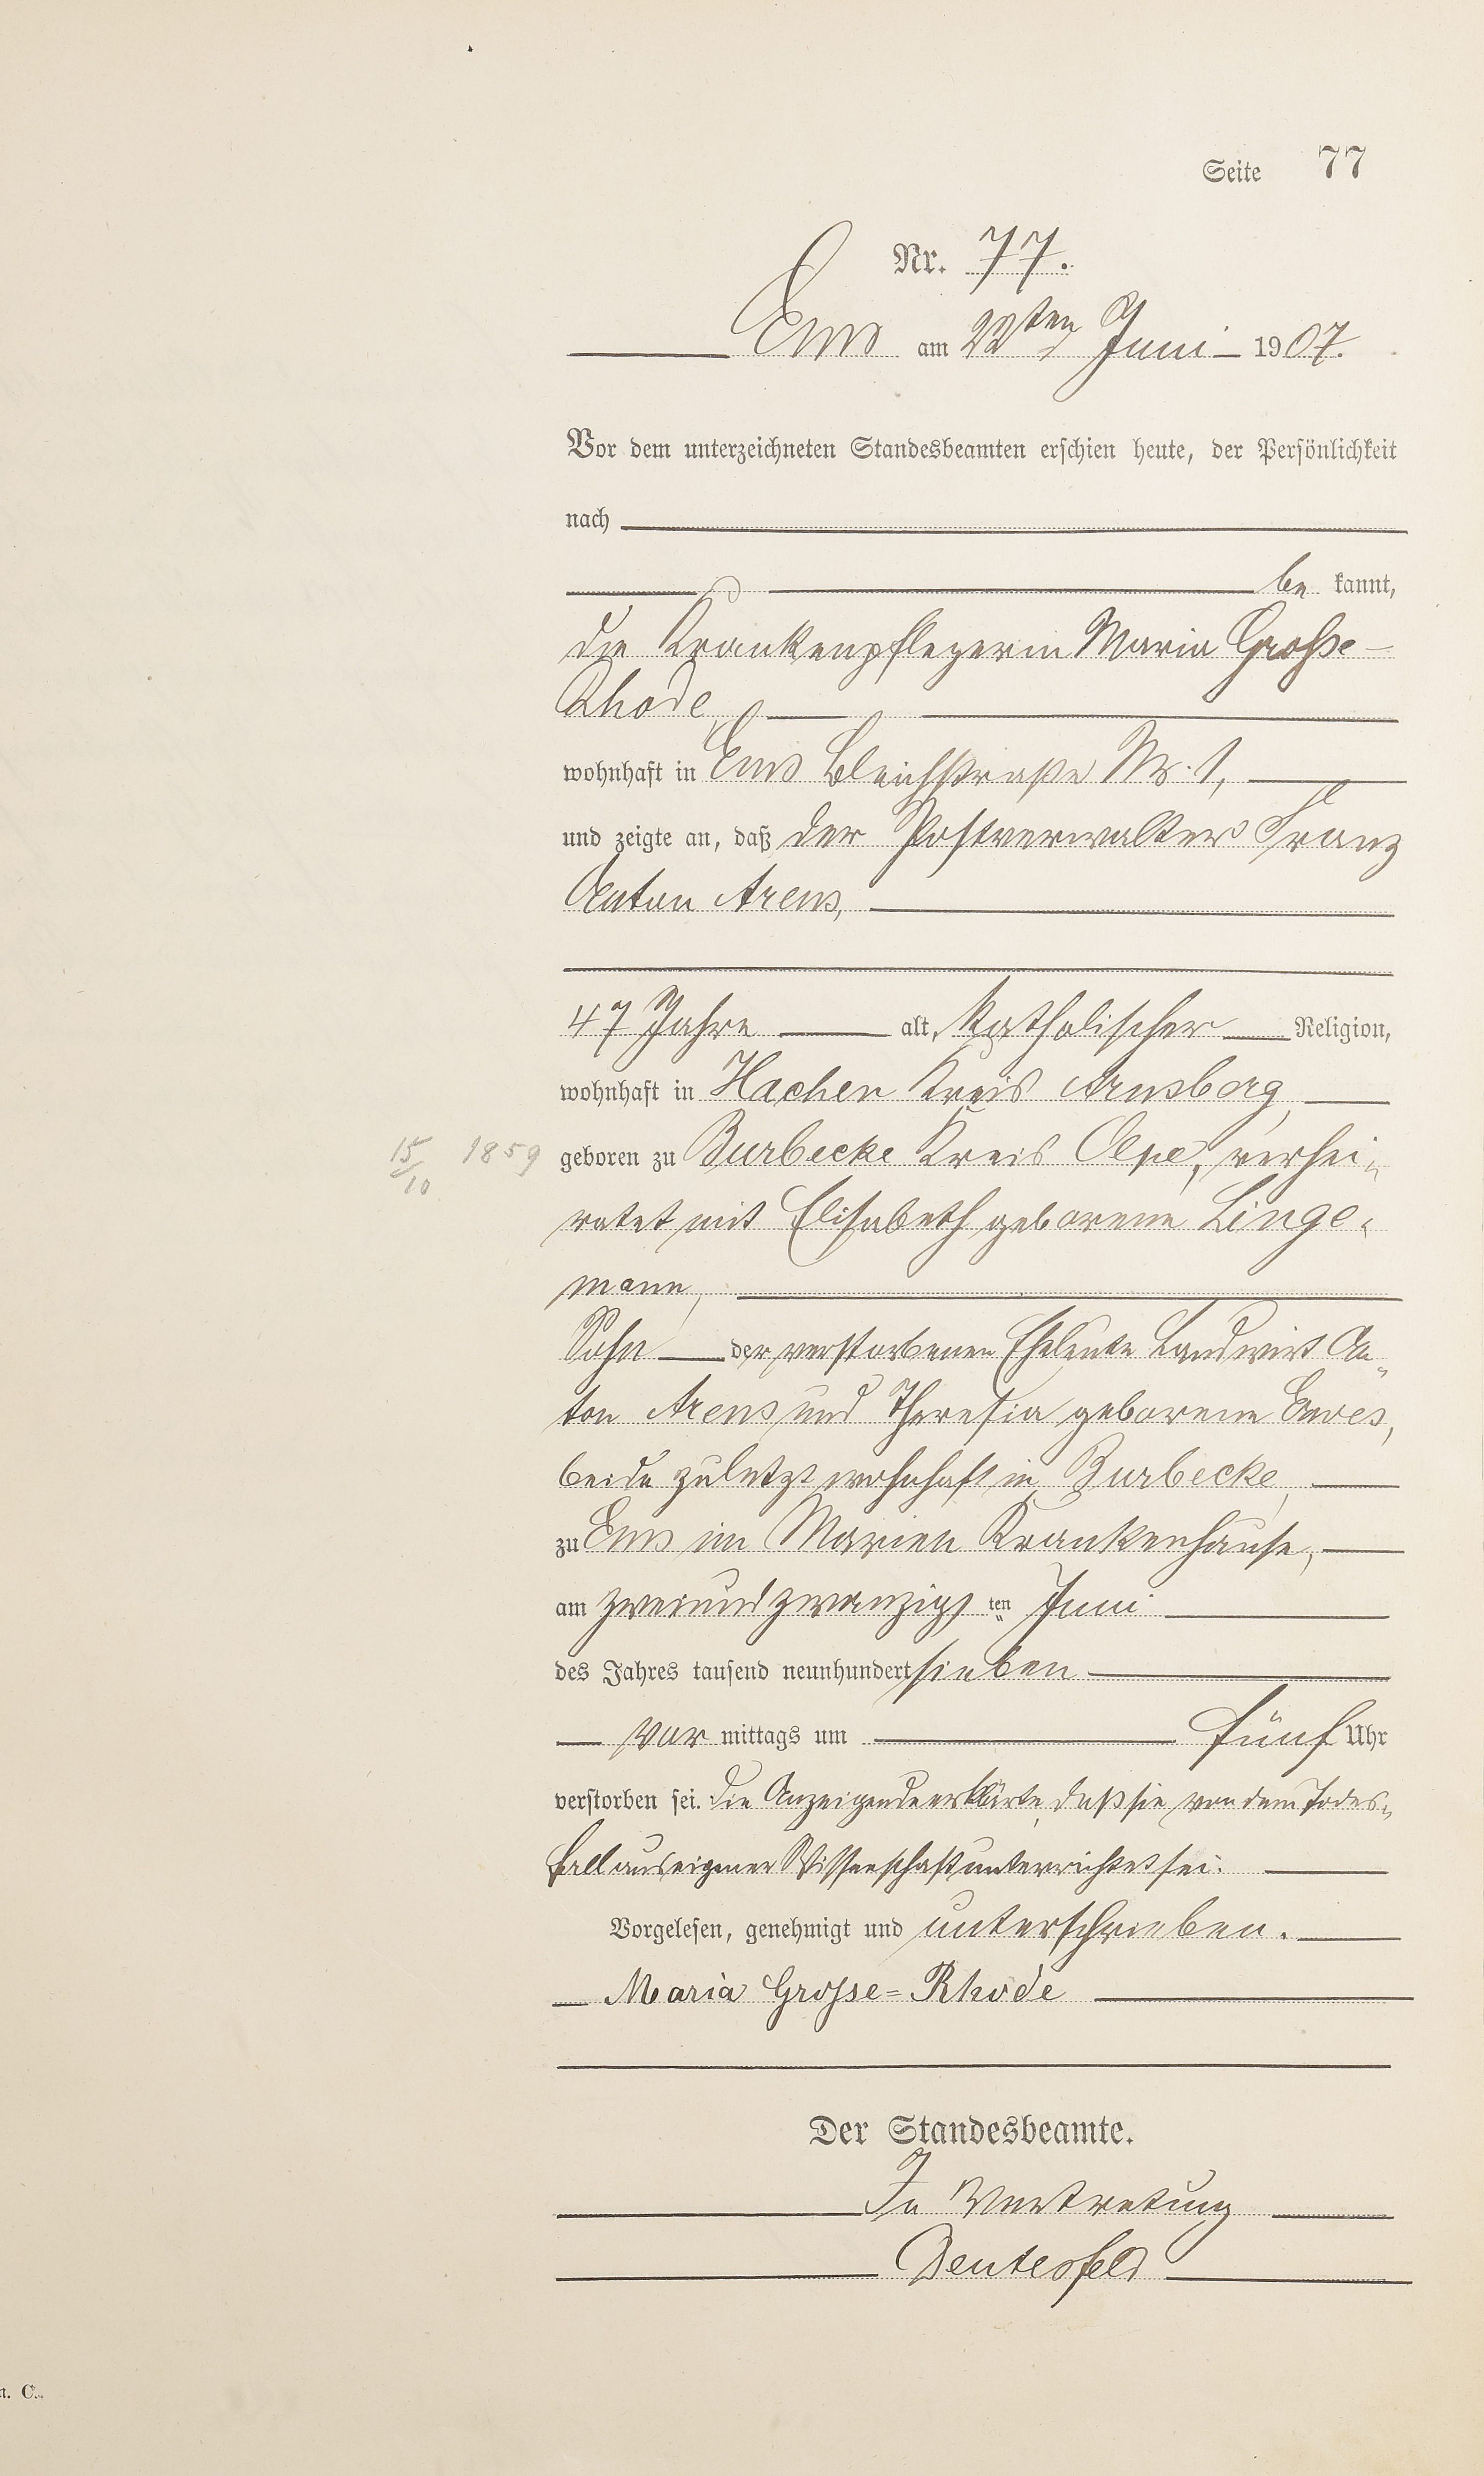 Seite 77
Nr. 77.
Ems am 22ten Juni 1907.
Vor dem unterzeichneten Standesbeamten erschien heute, der Persönlichkeit
nach
be kannt,
die Krankenpflegerin Maria Große-
Rhode,
wohnhaft in Ems Bleichstraße Nr. 1,
und zeigte an, daß der Postverwalter Franz
Anton Arens,
47 Jahre alt, katholischer Religion,
wohnhaft in Hachen Kreis Arnsberg,
15/10 1859 geboren zu Burbecke Kreis Olpe, verhei-
ratet mit Elisabeth geborene Linge-
mann,
Sohn der verstorbenen Eheleute Landwirt An-
ton Arens und Theresia geborene
beide zuletzt wohnhaft in Burbecke,
zu Ems im Marien Krankenhause,
am zweiundzwanzigs ten Juni
des Jahres tausend neunhundert sieben
vor mittags um fünf Uhr
verstorben sei. Die Anzeigende erklärte, daß sie von dem Todes-
fall aus eigener Wissenschaft unterrichtet sei.
Vorgelesen, genehmigt und unterschrieben.
Maria Grosse=Rhode
Der Standesbeamte.
In Vertretung
Deutesfeld
n. C.